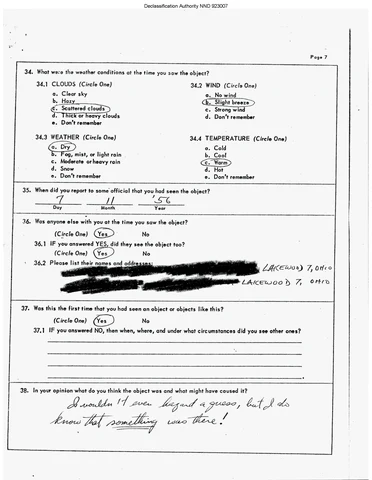 Declassification Authority NND 923007
Page 7
34. What were the weather conditions at the time you saw the object?
34.1 CLOUDS (Circle One)
a. Clear sky
b. Hazy
c. Scattered clouds
d. Thick or heavy clouds
e. Don't remember
34.2 WIND (Circle One)
a. No wind
b. Slight breeze
c. Strong wind
d. Don't remember
34.3 WEATHER (Circle One)
a. Dry
b. Fog, mist, or light rain
c. Moderate or heavy rain
d. Snow
e. Don't remember
34.4 TEMPERATURE (Circle One)
a. Cold
b. Cool
c. Warm
d. Hot
e. Don't remember
35. When did you report to some official that you had seen the object?
7 11 '56
Day Month Year
36. Was anyone else with you at the time you saw the object?
(Circle One) Yes No
36.1 IF you answered YES, did they see the object too?
(Circle One) Yes No
36.2 Please list their names and addresses:
LAKEWOOD 7, OHIO
LAKEWOOD 7, OHIO
37. Was this the first time that you had seen an object or objects like this?
(Circle One) Yes No
37.1 IF you answered NO, then when, where, and under what circumstances did you see other ones?
38. In your opinion what do you think the object was and what might have caused it?
I wouldn't even hazard a guess, but I do
know that something was there!